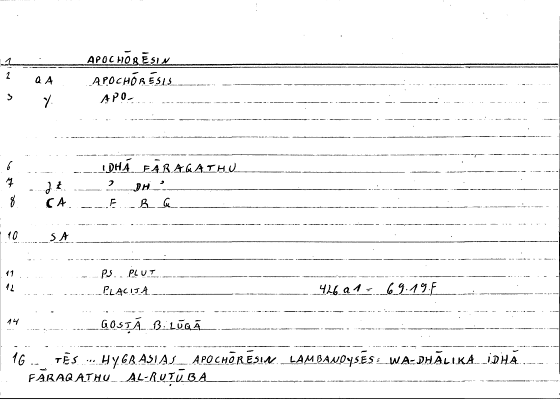 1 APOCHŌRĒSIN
2 QA APOCHŌRĒSIS
3 y APO-
6 IDHĀ FĀRAQATHU
7 gt ʾ DH ʾ
8 CA F R Q
10 SA
11 PS. PLUT
12 PLACITA 426 a 1 - 69.19 F
14 QOSṬĀ B. LŪQĀ
16 TĒS ... HYGRASIAS APOCHŌRĒSIN LAMBANOYSĒS: WA-DHĀLIKA IDHĀ
FĀRAQATHU AL-RUṬŪBA